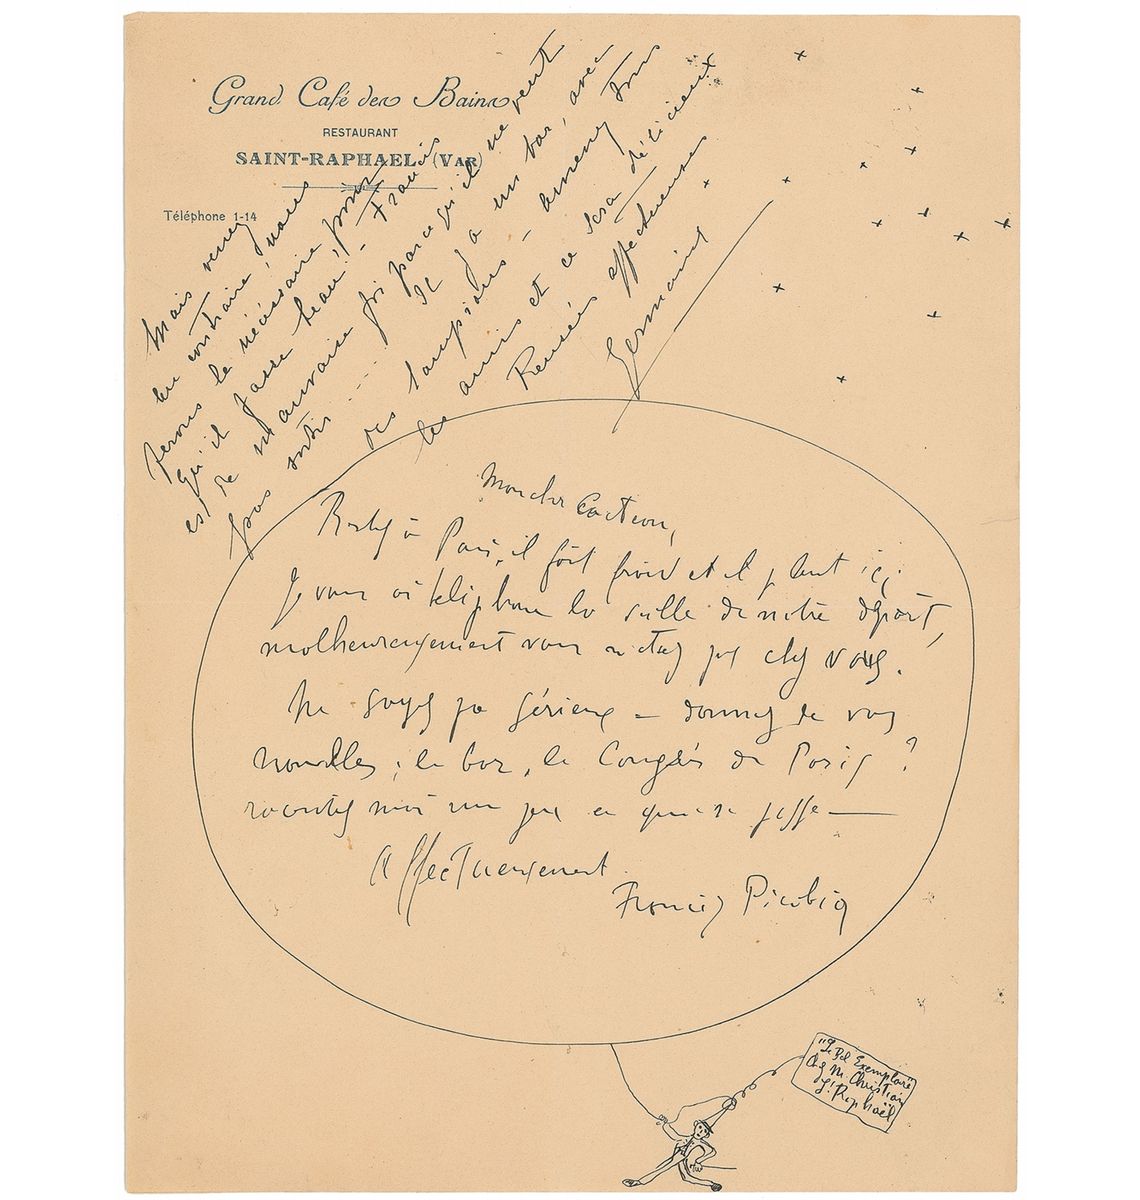 Grand Café des Bains
RESTAURANT
SAINT-RAPHAEL (VAR)
Téléphone 1-14
Mais venez
au contraire, nous
ferons le nécessaire, pour
qu'il fasse beau. - Francis
est de mauvaise foi parce qu'il ne veut
pas sortir .... Il y a un bar, avec
des lampions - amenez tous
les amis et ce sera délicieux
Pensées affectueuses
Germaine
Mon cher Cocteau,
Restez à Paris, il fait froid et il pleut ici.
Je vous ai téléphoné la veille de notre départ,
malheureusement vous n'étiez pas chez vous.
Ne soyez pas sérieux - donnez de vos
nouvelles ; le bar, le Congrès de Paris ?
racontez moi un peu ce qui se passe —
Affectueusement.
Francis Picabia
"Le Bel Exemplaire"
Chez M. Christian
St Raphaël